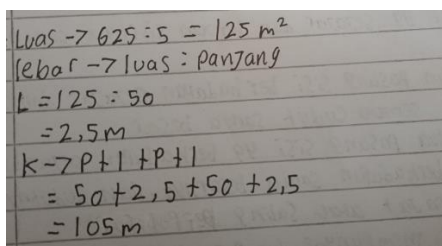 Luas -> 625 : 5 = 125 m²
lebar -> luas : panjang
L = 125 : 50
= 2,5 m
K -> P + l + P + l
= 50 + 2,5 + 50 + 2,5
= 105 m